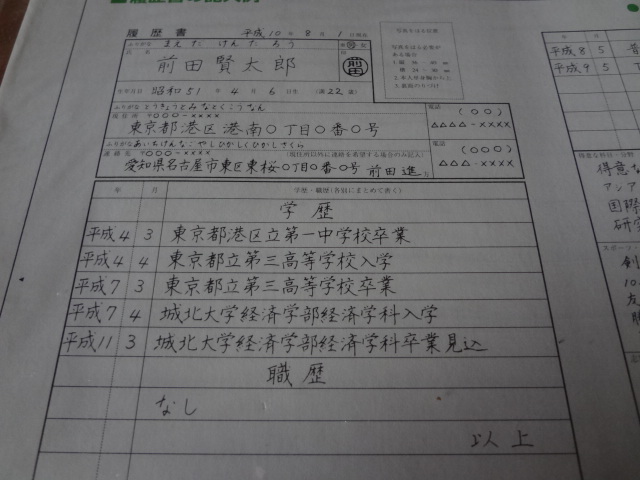 履歴書 平成10年8月1日現在
ふりがな まえだ けんたろう
氏名 前田賢太郎 前田
写真をはる位置
写真をはる必要が
ある場合
生年月日 昭和51年4月6日生 (満22歳)
ふりがな とうきょうとみなとくこうなん
現住所 〒○○○-××××
東京都港区港南○丁目○番○号
電話 (○○)
△△△△-××××
ふりがな あいちけんなごやしひがしくひがしさくら
連絡先 〒○○○-×××× (現住所以外に連絡を希望する場合のみ記入)
愛知県名古屋市東区東桜○丁目○番○号 前田進方
電話 (○○)
△△△△-××××
年 月 学歴・職歴(各別にまとめて書く)
学歴
平成4 3 東京都港区立第一中学校卒業
平成4 4 東京都立第三高等学校入学
平成7 3 東京都立第三高等学校卒業
平成7 4 城北大学経済学部経済学科入学
平成11 3 城北大学経済学部経済学科卒業見込
職歴
なし
以上
年 月
平成8 5
平成9 5
得意な科目・分野
得意な
アジア
国際
研究
スポーツ
創
10
友